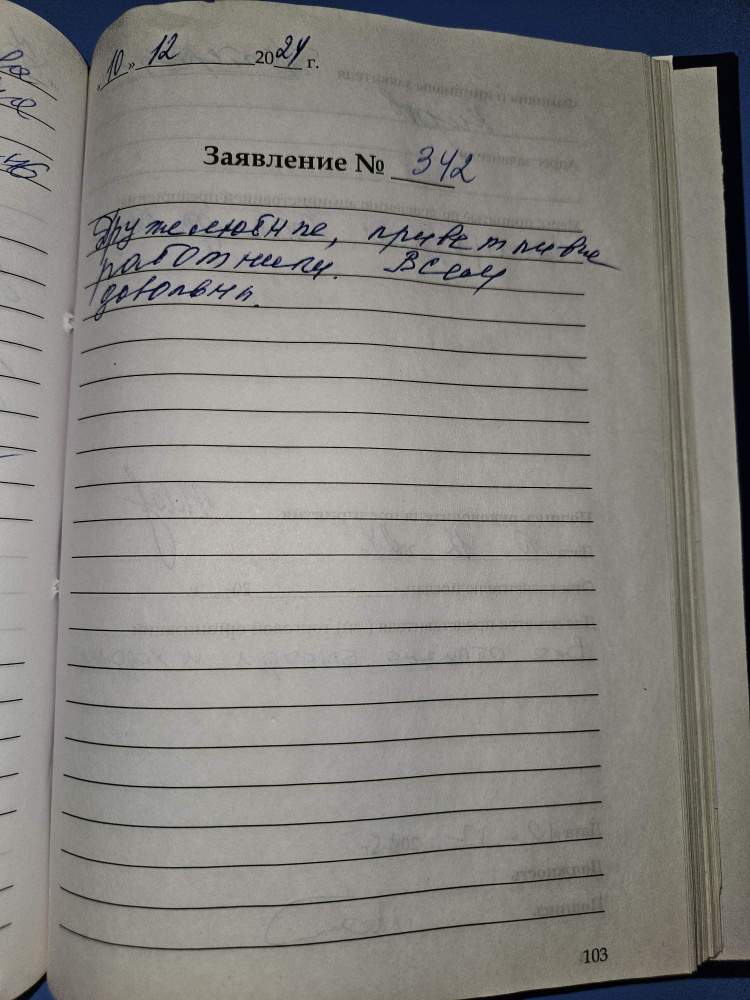 «10» 12 2024 г.
Заявление № 342
Дружелюбные, приветливые
работники. Всем
довольны.
103